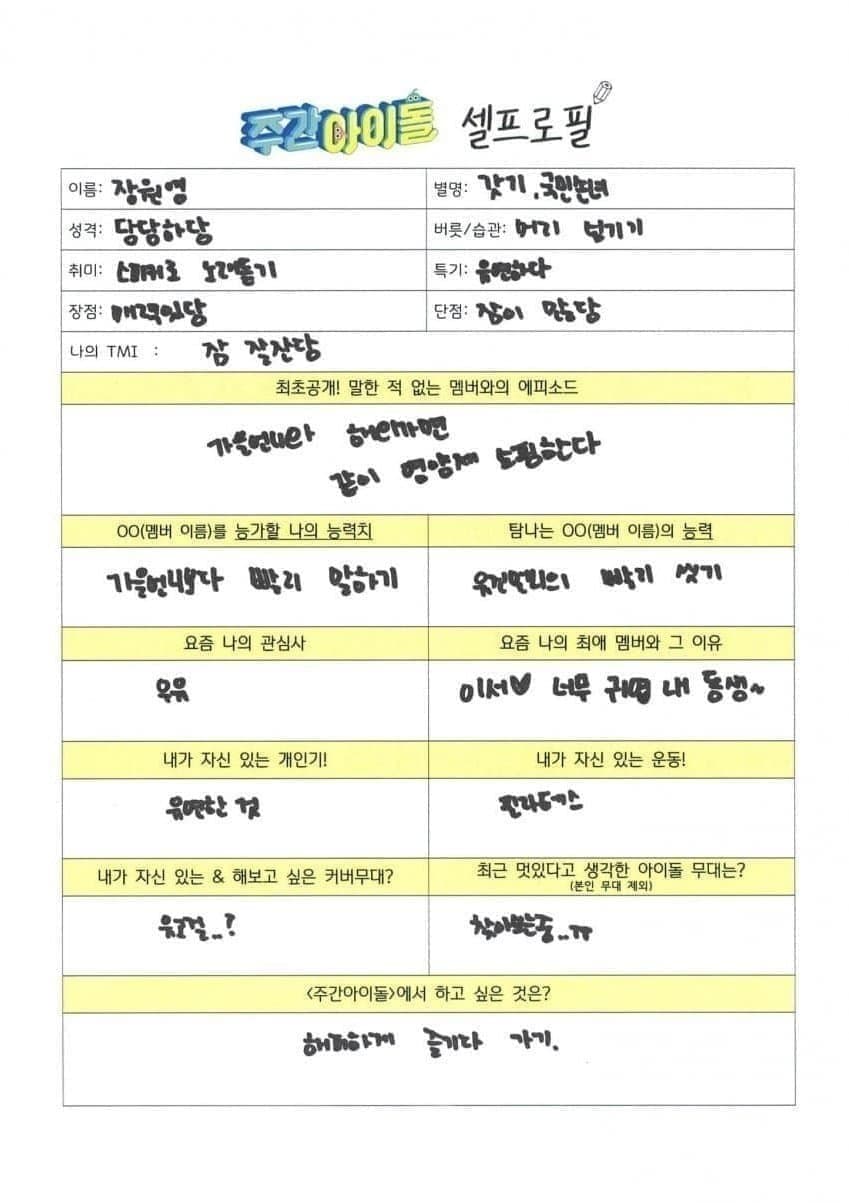 주간아이돌 셀프로필
이름: 장원영
별명: 갓기, 국민손녀
성격: 당당하당
버릇/습관: 머리 넘기기
취미: 스피커로 노래듣기
특기: 유연하다
장점: 매력있당
단점: 잠이 많당
나의 TMI : 잠 잘잔당
최초공개! 말한 적 없는 멤버와의 에피소드
가을언니와 해외가면
같이 영양제 쇼핑한다
OO(멤버 이름)를 능가할 나의 능력치
탐나는 OO(멤버 이름)의 능력
가을언니보다 빨리 말하기
유진언니의 빨리 씻기
요즘 나의 관심사
요즘 나의 최애 멤버와 그 이유
우유
이서♥ 너무 귀엽 내 동생~
내가 자신 있는 개인기!
내가 자신 있는 운동!
유연한 것
필라테스
내가 자신 있는 & 해보고 싶은 커버무대?
최근 멋있다고 생각한 아이돌 무대는?
(본인 무대 제외)
유고걸..?
찾아보는중..ㅠㅠ
<주간아이돌>에서 하고 싶은 것은?
해피하게 즐기다 가기.